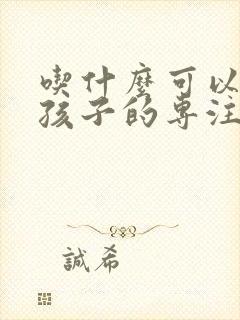 喫什麼可以
孩子的專注
誠希